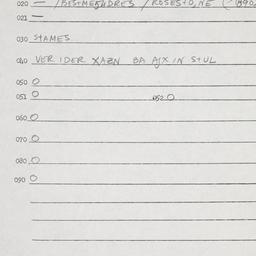 020 —
021 —
030 STAMES
040 VER IDER XAZN BA AJX IN STUL
050 O
051 O 052 O
060 O
070 O
080 O
090 O